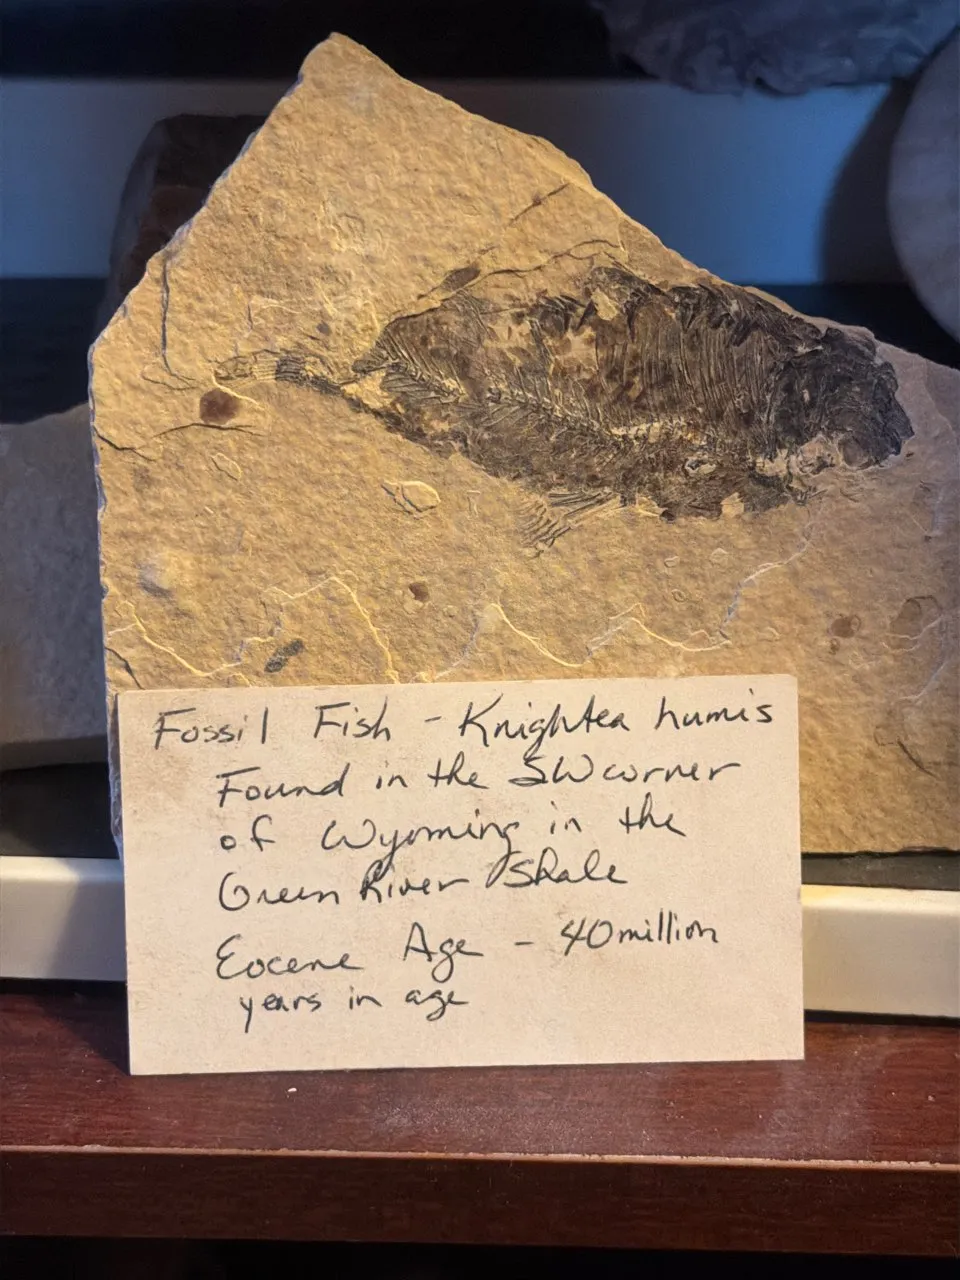 Fossil Fish - Knightea humis
Found in the SW corner
of Wyoming in the
Green River Shale
Eocene Age - 40 million
years in age